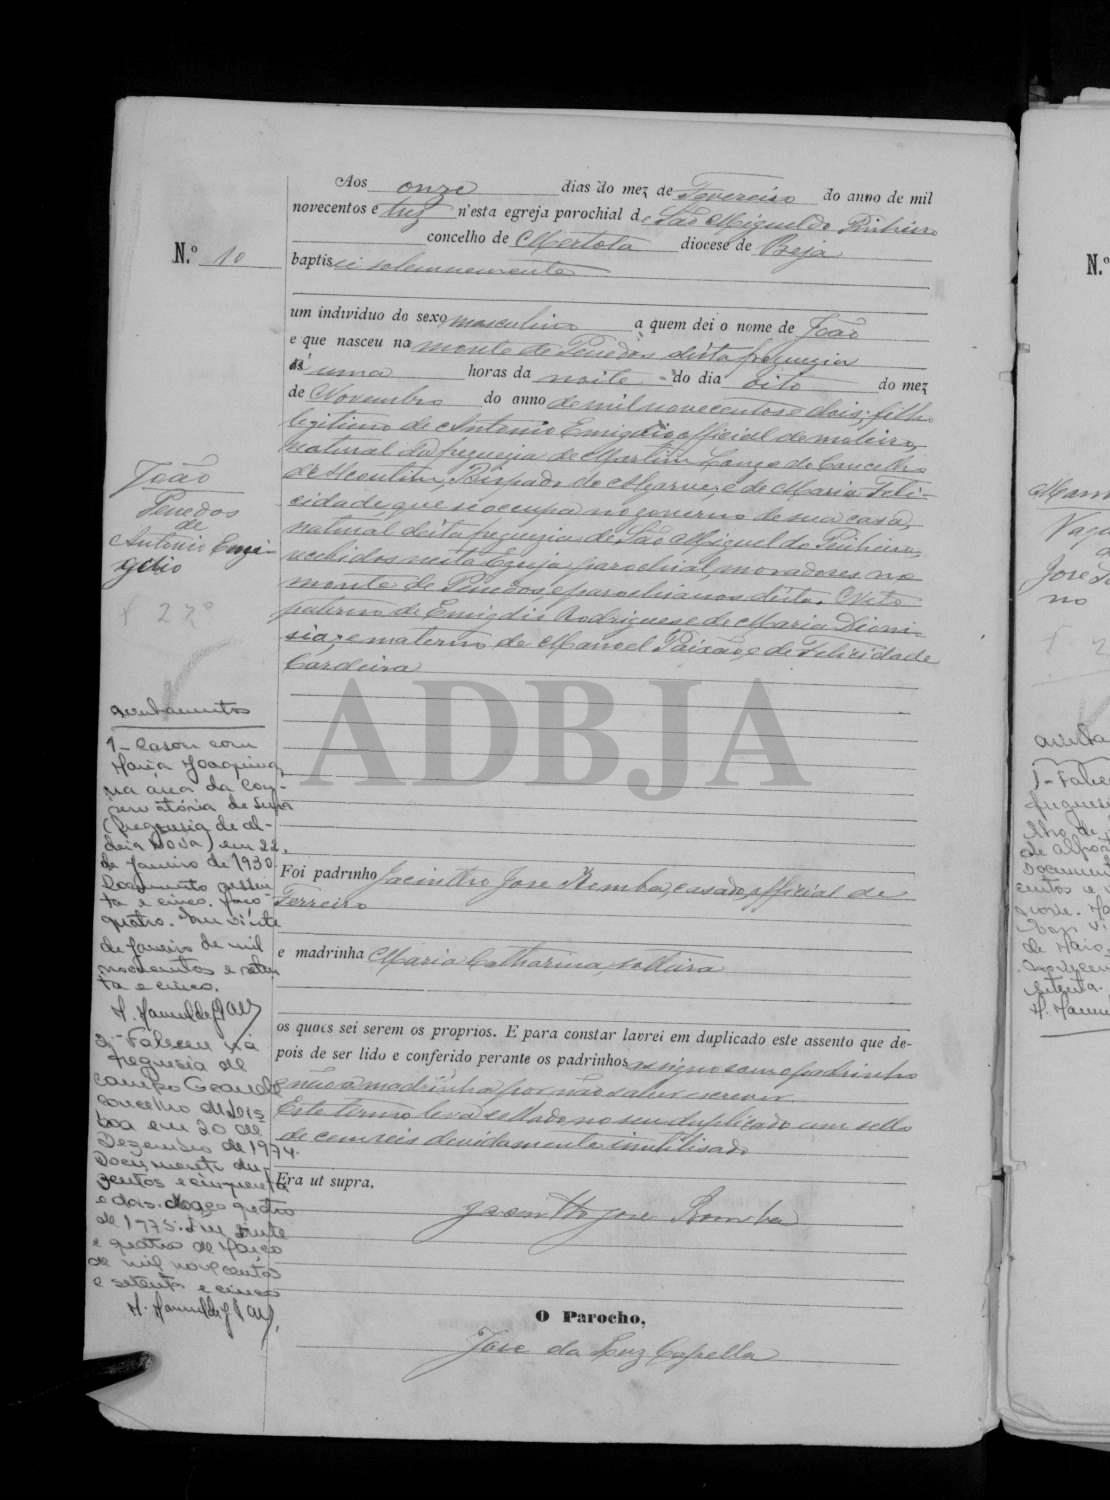 Aos onze dias do mez de Fevereiro do anno de mil
novecentos e trez n'esta egreja parochial de São Miguel do Pinheiro
concelho de Mertola diocese de Beja
N.º 10
baptisei solemnemente
um individuo do sexo masculino a quem dei o nome de João
e que nasceu na monte de Penedos desta freguezia
ás uma horas da noite do dia oito do mez
de Novembro do anno de mil novecentos e dois, filho
legitimo de Antonio Emigdio, official de moleiro,
natural da freguezia de Martim Longo do Concelho
de Alcoutim, Bispado do Algarve, e de Maria Feli-
cidade, que se occupa no governo de sua casa,
natural desta freguezia de São Miguel do Pinheiro,
recebidos nesta Egreja parochial, moradores no
monte de Penedos, e parochianos desta. Neto
paterno de Emigdio Rodrigues e de Maria Dioni-
sia, e materno de Manoel Paixão, e de Felicidade
Cardeira
João
Penedos
de
Antonio Emi-
gdio
+ 22º
ADBJA
Averbamentos
1- Casou com
Maria Joaquina,
na área da Con-
servatória de Serpa
(freguesia de Al-
deia Nova) em 22
de Janeiro de 1930.
Documento sessen-
ta e cinco. Maço
quatro. Em vinte
de Janeiro de mil
novecentos e seten-
ta e cinco.
2- Faleceu na
freguesia de
Campo Grande
concelho de Lis-
boa em 20 de
Dezembro de 1974.
Documento du-
zentos e cinquenta
e dois. Maço quatro
de 1975. Em vinte
e quatro de Março
de mil novecentos
e setenta e cinco
Foi padrinho Jacintho Jose Romba, casado, official de
Ferreiro
e madrinha Maria Catharina, solteira
os quaes sei serem os proprios. E para constar lavrei em duplicado este assento que de-
pois de ser lido e conferido perante os padrinhos assigno com o padrinho
e não a madrinha por não saber escrever.
Este termo leva sellado no seu duplicado um sello
de cem reis devidamente inutilisado
Era ut supra.
Jacintho Jose Romba
O Parocho,
Jose da Luz Capella
N.º